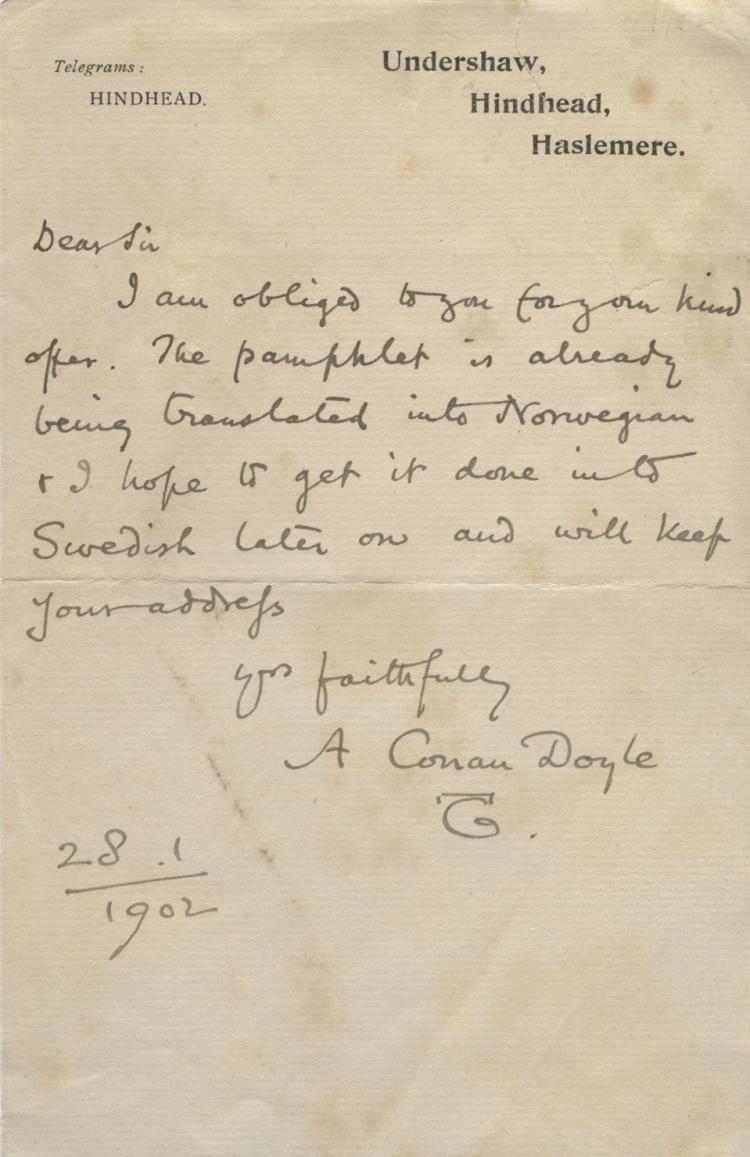 Telegrams:
HINDHEAD.
Undershaw,
Hindhead,
Haslemere.
Dear Sir
I am obliged to you for your kind
offer. The pamphlet is already
being translated into Norwegian
+ I hope to get it done into
Swedish later on and will keep
your address
yrs faithfully
A Conan Doyle
28.1
1902